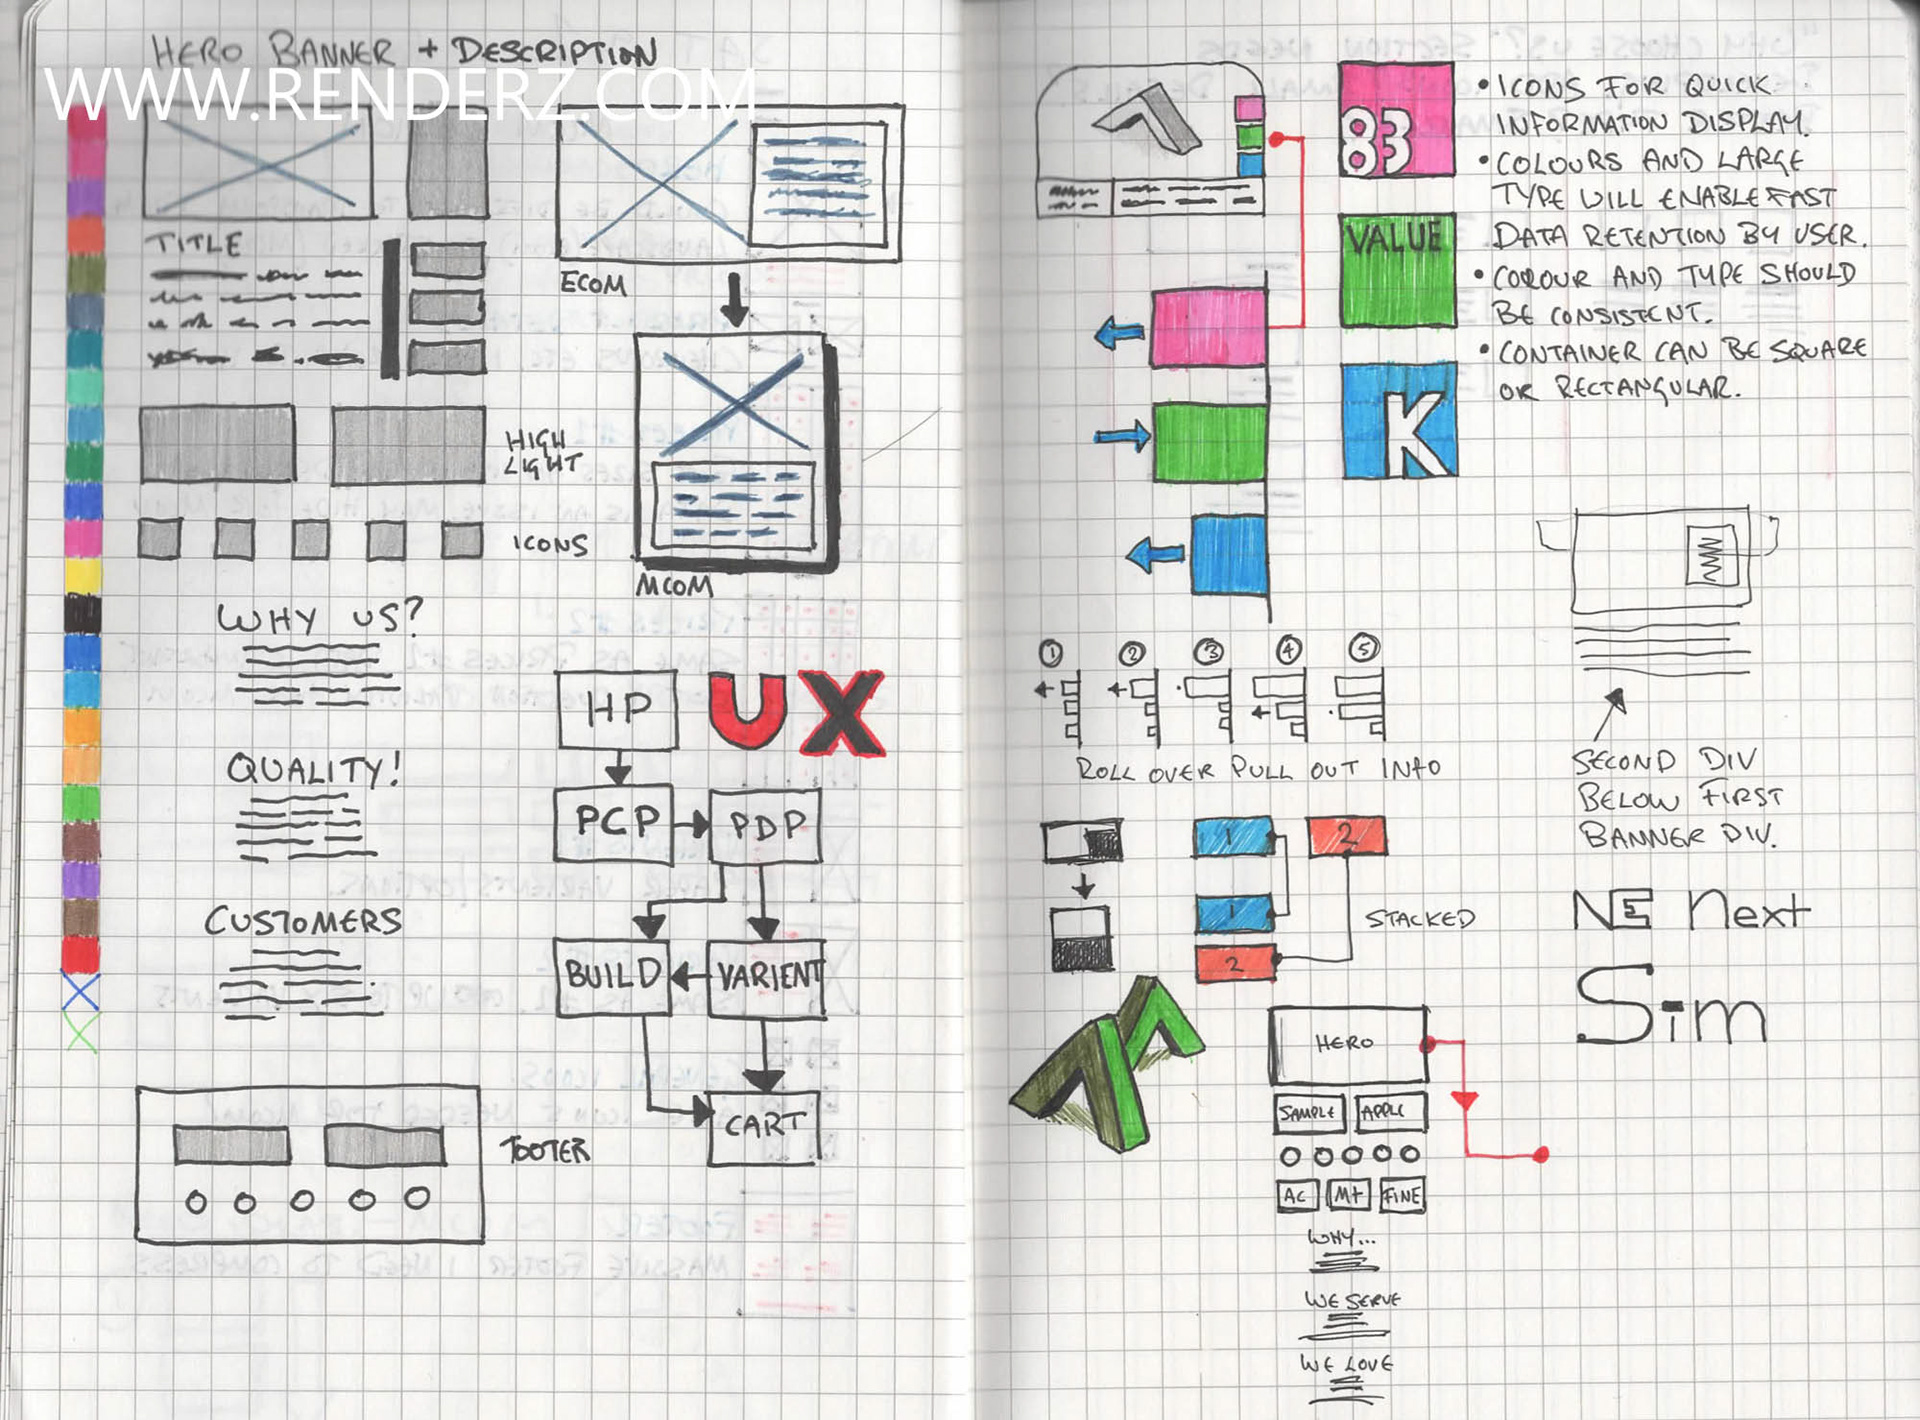 HERO BANNER + DESCRIPTION
WWW.RENDERZ.COM
TITLE
HIGH
LIGHT
ICONS
WHY US?
QUALITY!
CUSTOMERS
FOOTER
ECOM
MCOM
UX
HP
PCP
PDP
BUILD
VARIENT
CART
83
VALUE
K
• ICONS FOR QUICK
INFORMATION DISPLAY.
• COLOURS AND LARGE
TYPE WILL ENABLE FAST
DATA RETENTION BY USER.
• COLOUR AND TYPE SHOULD
BE CONSISTENT.
• CONTAINER CAN BE SQUARE
OR RECTANGULAR.
1 2 3 4 5
ROLL OVER PULL OUT INFO
SECOND DIV
BELOW FIRST
BANNER DIV.
1 2
1
2
STACKED
NE Next
Sim
HERO
SAMPLE APPLC
AC M+ FINE
WHY...
WE SERVE
WE LOVE